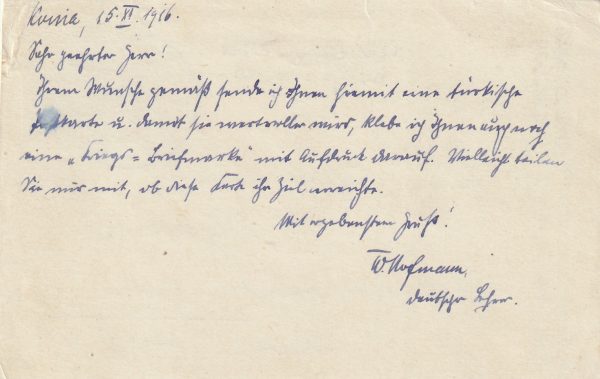 Konia, 15.XI.1916.
Sehr geehrter Herr!
Ihrem Wunsche gemäß sende ich Ihnen hiemit eine türkische
Postkarte u. damit sie wertvoller wird, klebe ich Ihnen auch noch
eine „Kriegs=Briefmarke“ mit Aufdruck darauf. Vielleicht teilen
Sie mir mit, ob diese Karte ihr Ziel erreichte.
Mit ergebenstem Gruß!
W. Hofmann,
deutscher Lehrer.